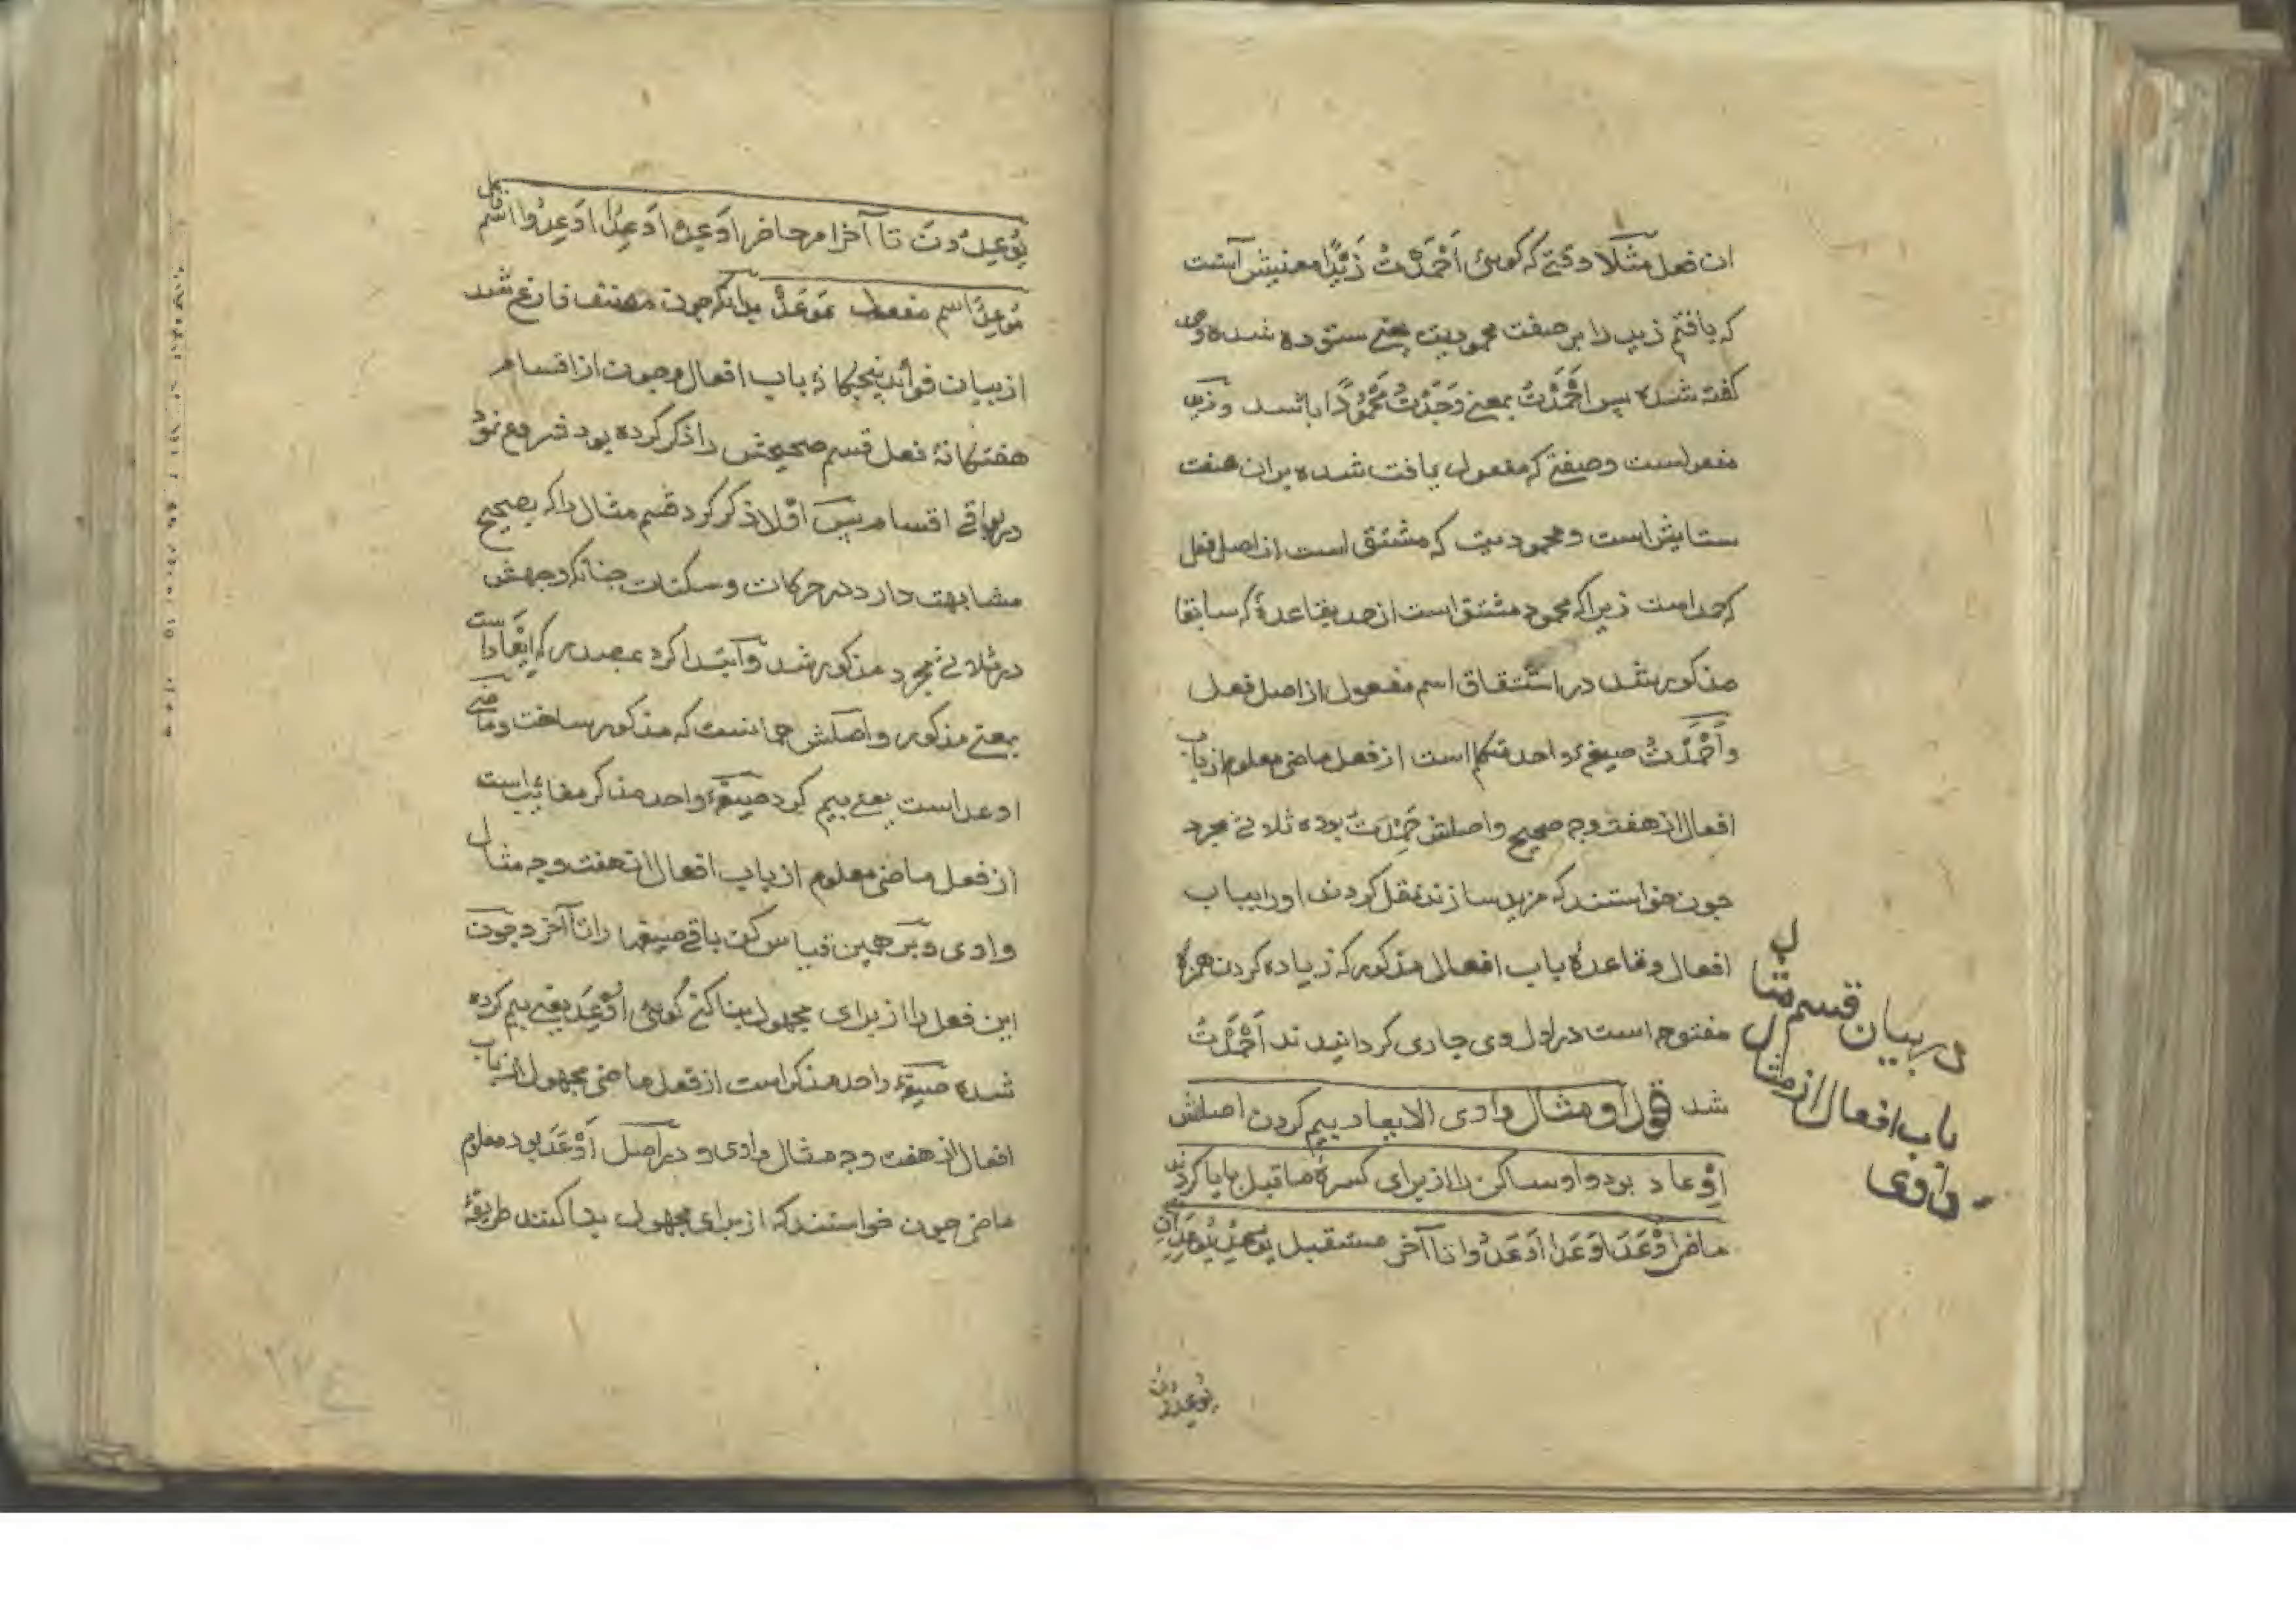 ان فعل مثلا وقتی که کوئی اَحْمَدْتُ زَیْدًا معنیش آنست
که یافتم زید را بر صفت محمودیت یعنی ستوده شده و حمد
کفته شده پس اَحْمَدْتُ بمعنی وَجَدْتُ مَحْمُودًا باشد و زید
مفعولست وصفتی که مفعول یافت شده بران صفت
ستایش است و محمودیت که مشتق است از اصل فعل
که حمد است زیرا که محمود مشتق است از حمد بقاعدهٔ که سابقا
مذکور شد در اشتقاق اسم مفعول از اصل فعل
و اَحْمَدْتُ صیغهٔ واحد متکلم است از فعل ماضی معلوم از باب
افعال از هفت وجه صحیح و اصلش حَمِدْتُ بوده ثلاثی مجرد
چون خواستند که مزید سازند نقل کردند اورا بباب
افعال و قاعدهٔ باب افعال مذکور که زیاده کردن همزهٔ
مفتوح است در اول وی جاری کردانیدند اَحْمَدْتُ
شد قول او مثال وادی الایعاد بیم کردن اصلش
اِوْعاد بود واو ساکن را از برای کسرهٔ ماقبل بایا کردند
ماضی اَوْعَدَ اَوْعَدَا اَوْعَدُوا تا آخر مستقبل یُوعِدُ یُوعِدَانِ
یُوعِدُونَ
در بیان قسم مثال
باب افعال از مثال
وادی
یُوعِدُونَ تا آخر امر حاضر اَوْعِدْ اَوْعِدَا اَوْعِدُوا اسم فاعل
مُوعِدٌ اسم مفعول مُوعَدٌ بدانکه چون مصنف فارغ شد
از بیان فوائد پنجکانهٔ باب افعال و چون از اقسام
هفتکانهٔ فعل قسم صحیحش را ذکر کرده بود شروع نمود
در بواقی اقسام پس اوّلا ذکر کرد قسم مثال را که بصحیح
مشابهت دارد در حرکات و سکنات چنانکه وجهش
در ثلاثی مجرد مذکور شد و ابتدا کرد بمصدر که ایعاد است
بمعنی مذکور و اصلش همانست که مذکور ساخت و ماضی
اوعد است یعنی بیم کرد صیغهٔ واحد مذکر مغایب است
از فعل ماضی معلوم از باب افعال از هفت وجه مثال
وادی و بر همین قیاس کن باقی صیغها را تا آخر و چون
این فعل را از برای مجهول بنا کنی کوئی اُوْعِدَ یعنی بیم کرده
شده صیغهٔ واحد مذکر است از فعل ماضی مجهول از باب
افعال از هفت وجه مثال وادی و در اصل اَوْعَدَ بود معلوم
ماضی چون خواستند که از برای مجهول بنا کنند طریقهٔ